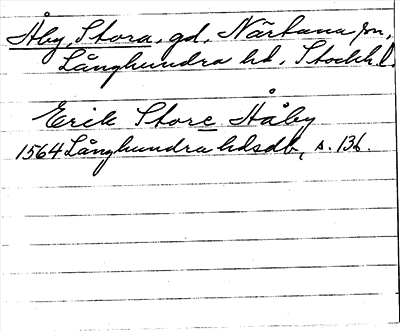 Åby, Stora, gd, Närtuna sn,
Långhundra hd, Stockh.l.
Erik Store Håby
1564 Långhundra hdsdb, s. 136.